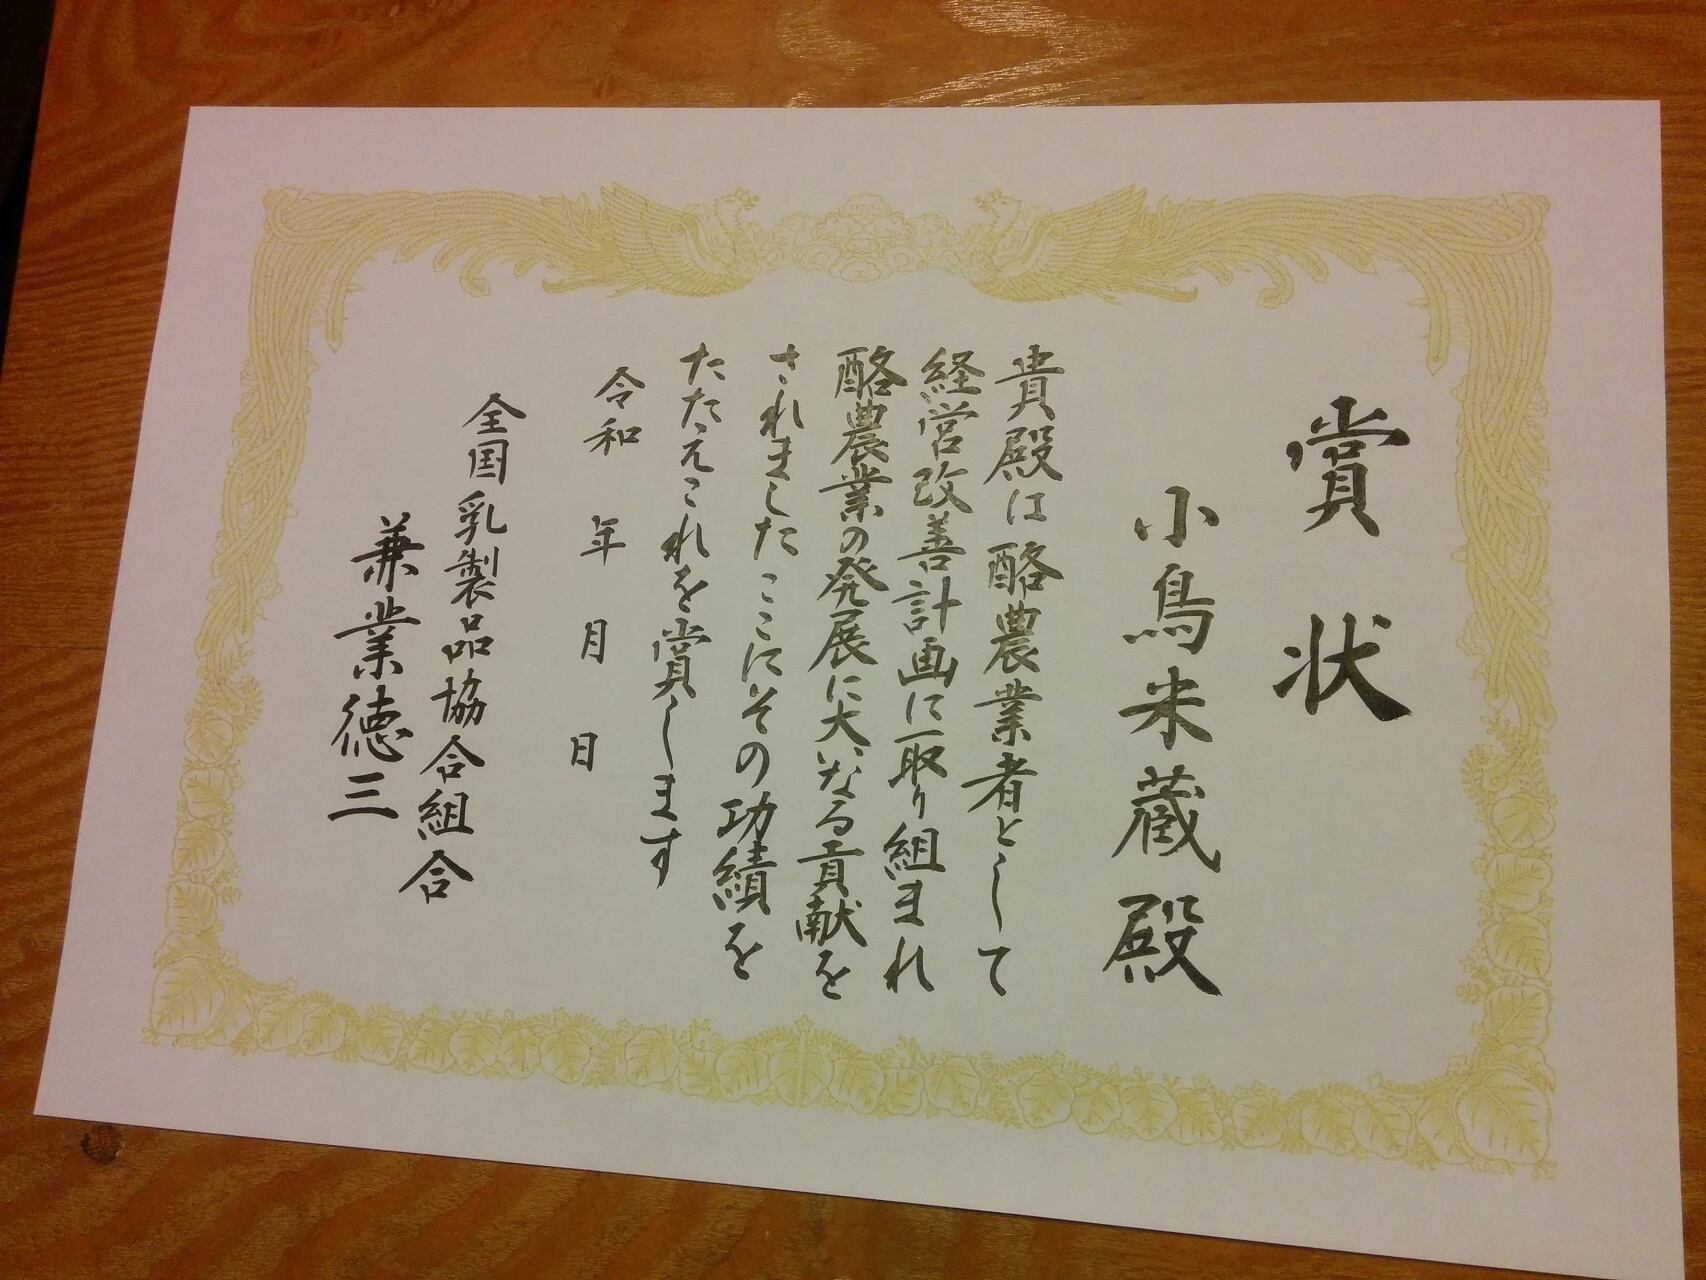 賞状
小鳥米蔵殿
貴殿は酪農業者として
経営改善計画に取り組まれ
酪農業の発展に大いなる貢献を
されました ここにその功績を
たたえこれを賞します
令和 年 月 日
全国乳製品協合組合
兼業徳三